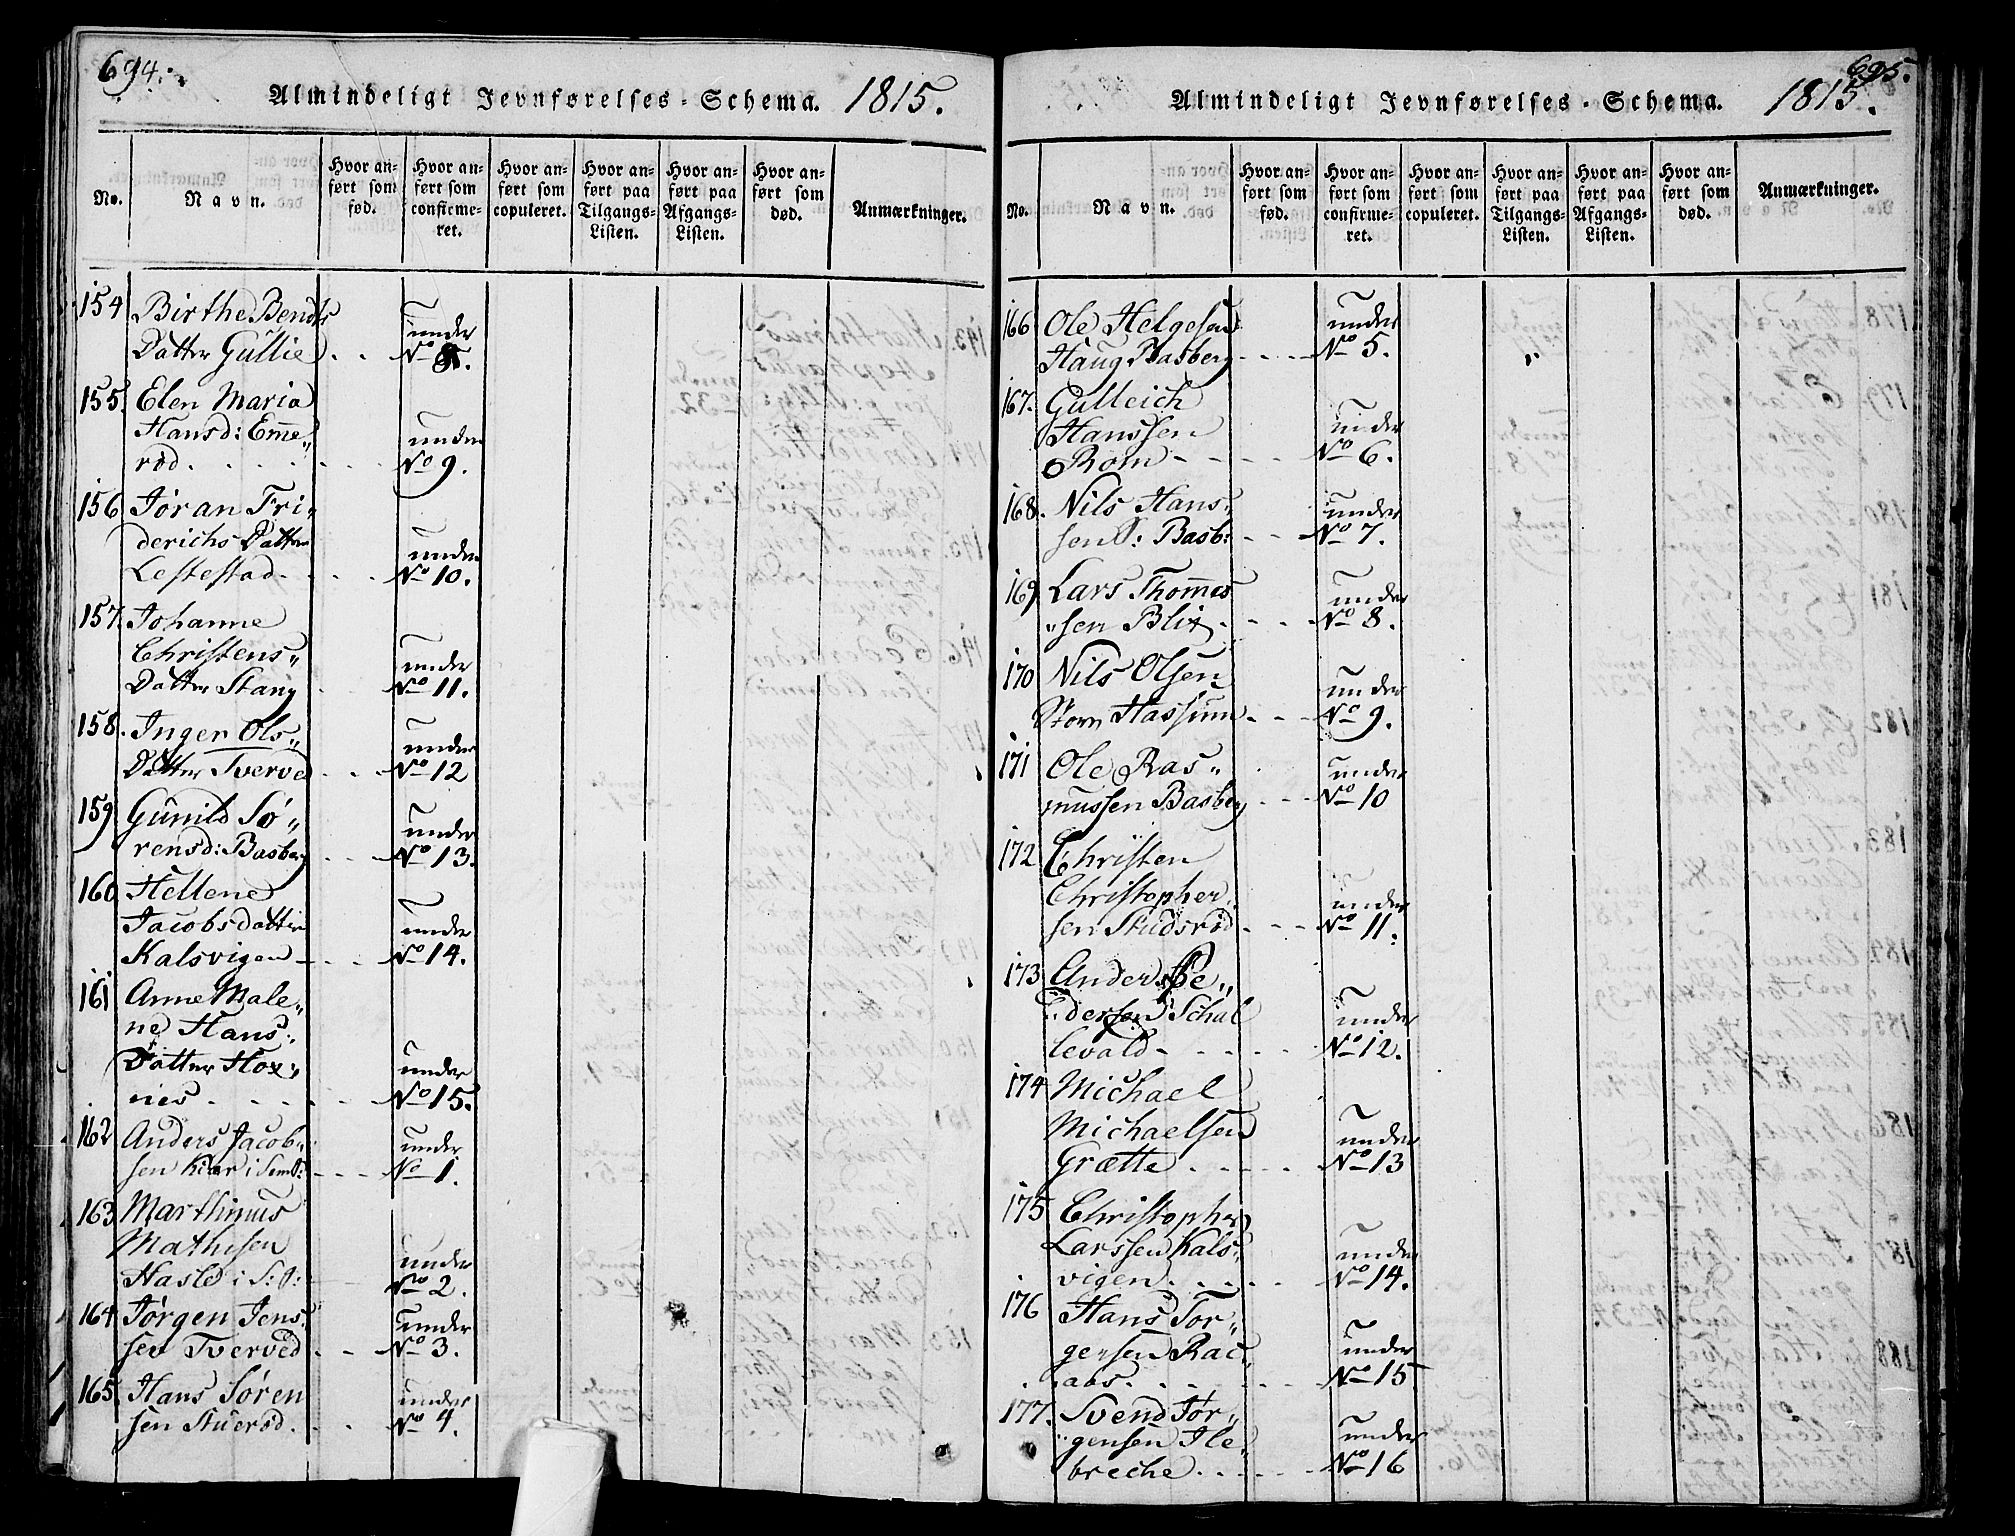 694.
Almindeligt Jevnførelses-Schema. 1815.
No.
Navn.
Hvor anført som fød.
Hvor anført som confirmeret.
Hvor anført som copuleret.
Hvor anført paa Tilgangs-Listen.
Hvor anført paa Afgangs-Listen.
Hvor anført som død.
Anmærkninger.
154 Birthe Bends
Datter Gullie . . under No 8.
155. Elen Maria
Hansd: Em̅e„
rød . . . under No 9.
156 Jøran Fri„
derichs Datter
Lestestad . . . under No 10.
157. Johanne
Christens„
Datter Stang . . under No 11.
158. Inger Ols„
Datter Tverved . . under No 12
159 Gunild Sø„
rensd: Basberg . . under No 13.
160 Hellene
Jacobsdatter
Kalsvigen . . under No 14.
161 Anne Male„
ne Hans„
Datter Hox„
nes . . . under No 15.
162 Anders Jacob„
sen Kiær i Sem S: . . under No 1.
163 Marthinus
Mathisen
Hasle i S: S: under No 2.
164 Jørgen Jens„
sen Tverved . . under No 3.
165. Hans Søren
sen Stuerød . . under No 4.
695.
Almindeligt Jevnførelses-Schema. 1815.
No.
Navn.
Hvor anført som fød.
Hvor anført som confirmeret.
Hvor anført som copuleret.
Hvor anført paa Tilgangs-Listen.
Hvor anført paa Afgangs-Listen.
Hvor anført som død.
Anmærkninger.
166 Ole Helgesen
Haug Basberg . . under No 5.
167. Gulleich
Hanssen
Rom . . . under No 6.
168. Nils Hans„
sen Basb: . . under No 7.
169 Lars Thom̅es
„sen Blix . . under No 8.
170 Nils Olsen
Storn Hassum . . under No 9.
171 Ole Ras„
mussen Basberg . . under No 10
172 Christen
Christopher„
sen Studsrød . . under No 11.
173 Anders Pe„
„dersen Schal
levald . . . under No 12.
174 Michael
Michaelsen
Grætte . . . under No 13
175 Christopher
Larssen Kals„
vigen . . . under No 14.
176 Hans Tor„
gersen Rac„
aas . . . under No 15
177. Svend Jør„
„gensen Ile„
breche . . . under No 16